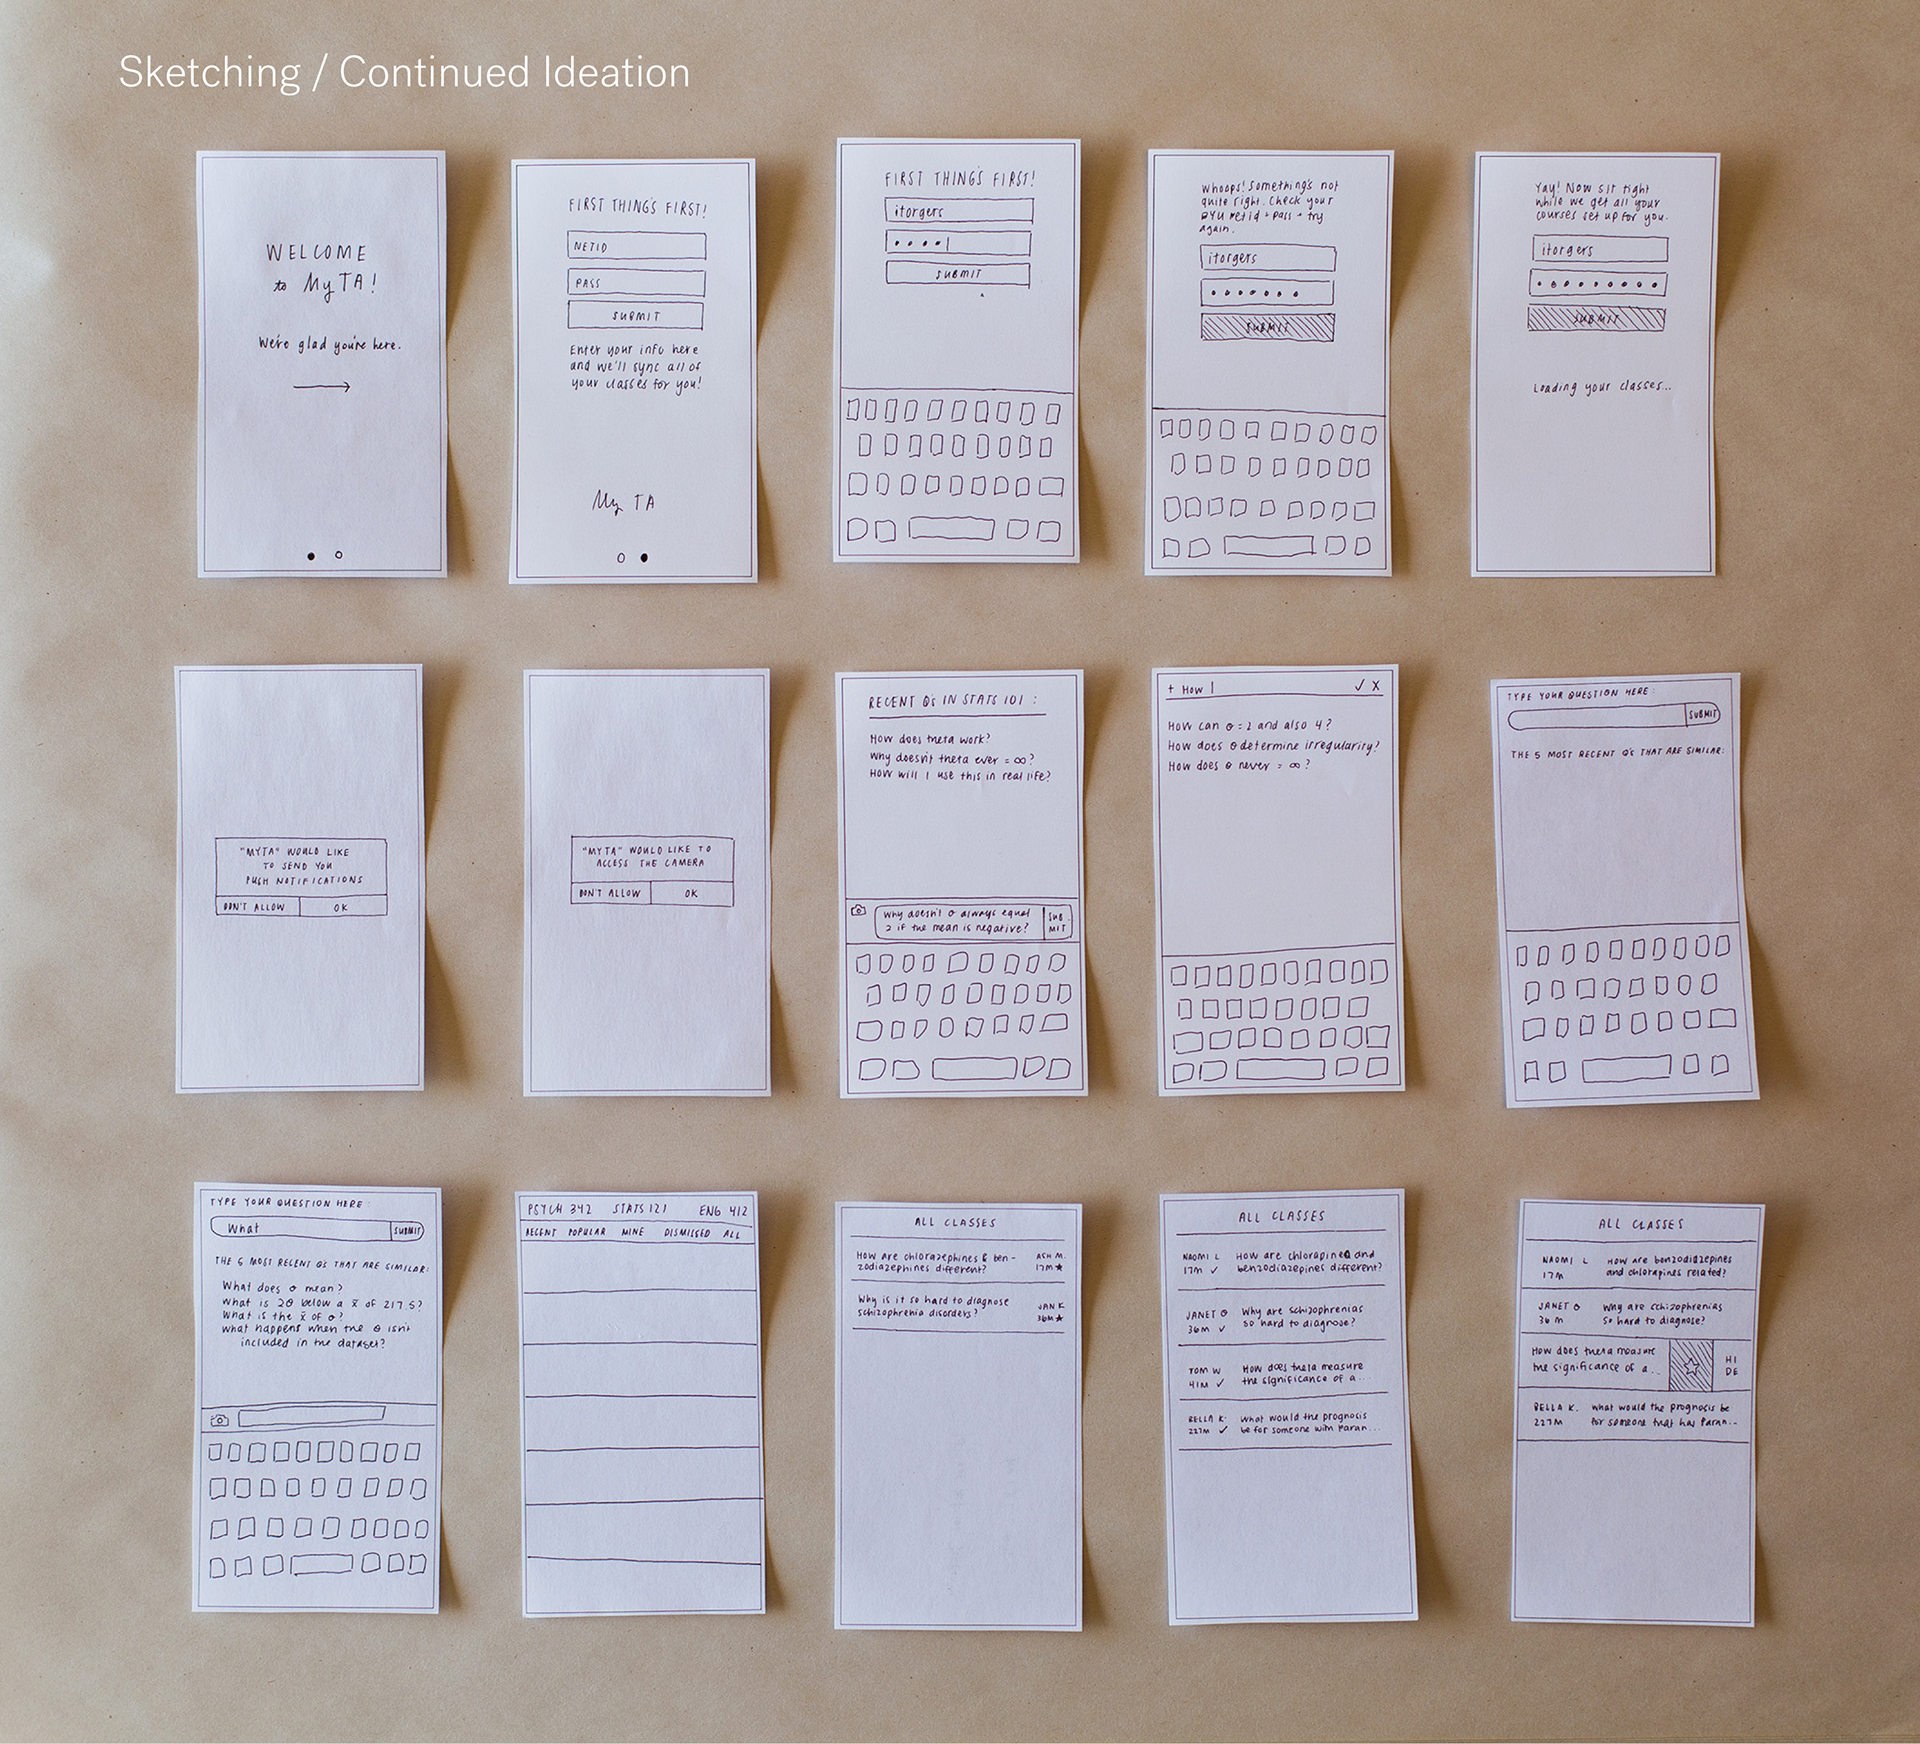 Sketching / Continued Ideation
WELCOME
to My TA!
We're glad you're here.
FIRST THING'S FIRST!
NETID
PASS
SUBMIT
Enter your info here
and we'll sync all of
your classes for you!
My TA
FIRST THING'S FIRST!
itorgers
SUBMIT
Whoops! Something's not
quite right. Check your
BYU netid + pass + try
again.
itorgers
SUBMIT
Yay! Now sit tight
while we get all your
courses set up for you.
itorgers
SUBMIT
Loading your classes...
"MYTA" WOULD LIKE
TO SEND YOU
PUSH NOTIFICATIONS
DON'T ALLOW OK
"MYTA" WOULD LIKE TO
ACCESS THE CAMERA
DON'T ALLOW OK
RECENT Q's IN STATS 101 :
How does theta work?
Why doesn't theta ever = ∞?
How will I use this in real life?
Why doesn't σ always equal
2 if the mean is negative?
SUB-
MIT
+ How | ✓ X
How can σ = 2 and also 4?
How does θ determine irregularity?
How does θ never = ∞?
TYPE YOUR QUESTION HERE:
SUBMIT
THE 5 MOST RECENT Q's THAT ARE SIMILAR:
TYPE YOUR QUESTION HERE:
What SUBMIT
THE 5 MOST RECENT Q's THAT ARE SIMILAR:
What does σ mean?
What is 2θ below a x̄ of 217.5?
What is the x̄ of σ?
What happens when the θ isn't
included in the dataset?
PSYCH 342 STATS 121 ENG 412
RECENT POPULAR MINE DISMISSED ALL
ALL CLASSES
How are chlorazephines & ben-
zodiazephines different?
ASH M.
17M ★
Why is it so hard to diagnose
schizophrenia disorders?
JAN K
36M ★
ALL CLASSES
NAOMI L How are chlorapines and
17M ✓ benzodiazepines different?
JANET O Why are schizophrenias
36M ✓ so hard to diagnose?
TOM W How does theta measure
41M ✓ the significance of a...
BELLA K. What would the prognosis
227M ✓ be for someone with Paran...
ALL CLASSES
NAOMI L How are benzodiazepines
17M and chlorapines related?
JANET O Why are schizophrenias
36 M so hard to diagnose?
How does theta measure
the significance of a...
HI
DE
BELLA K. What would the prognosis be
227M for someone that has Paran...